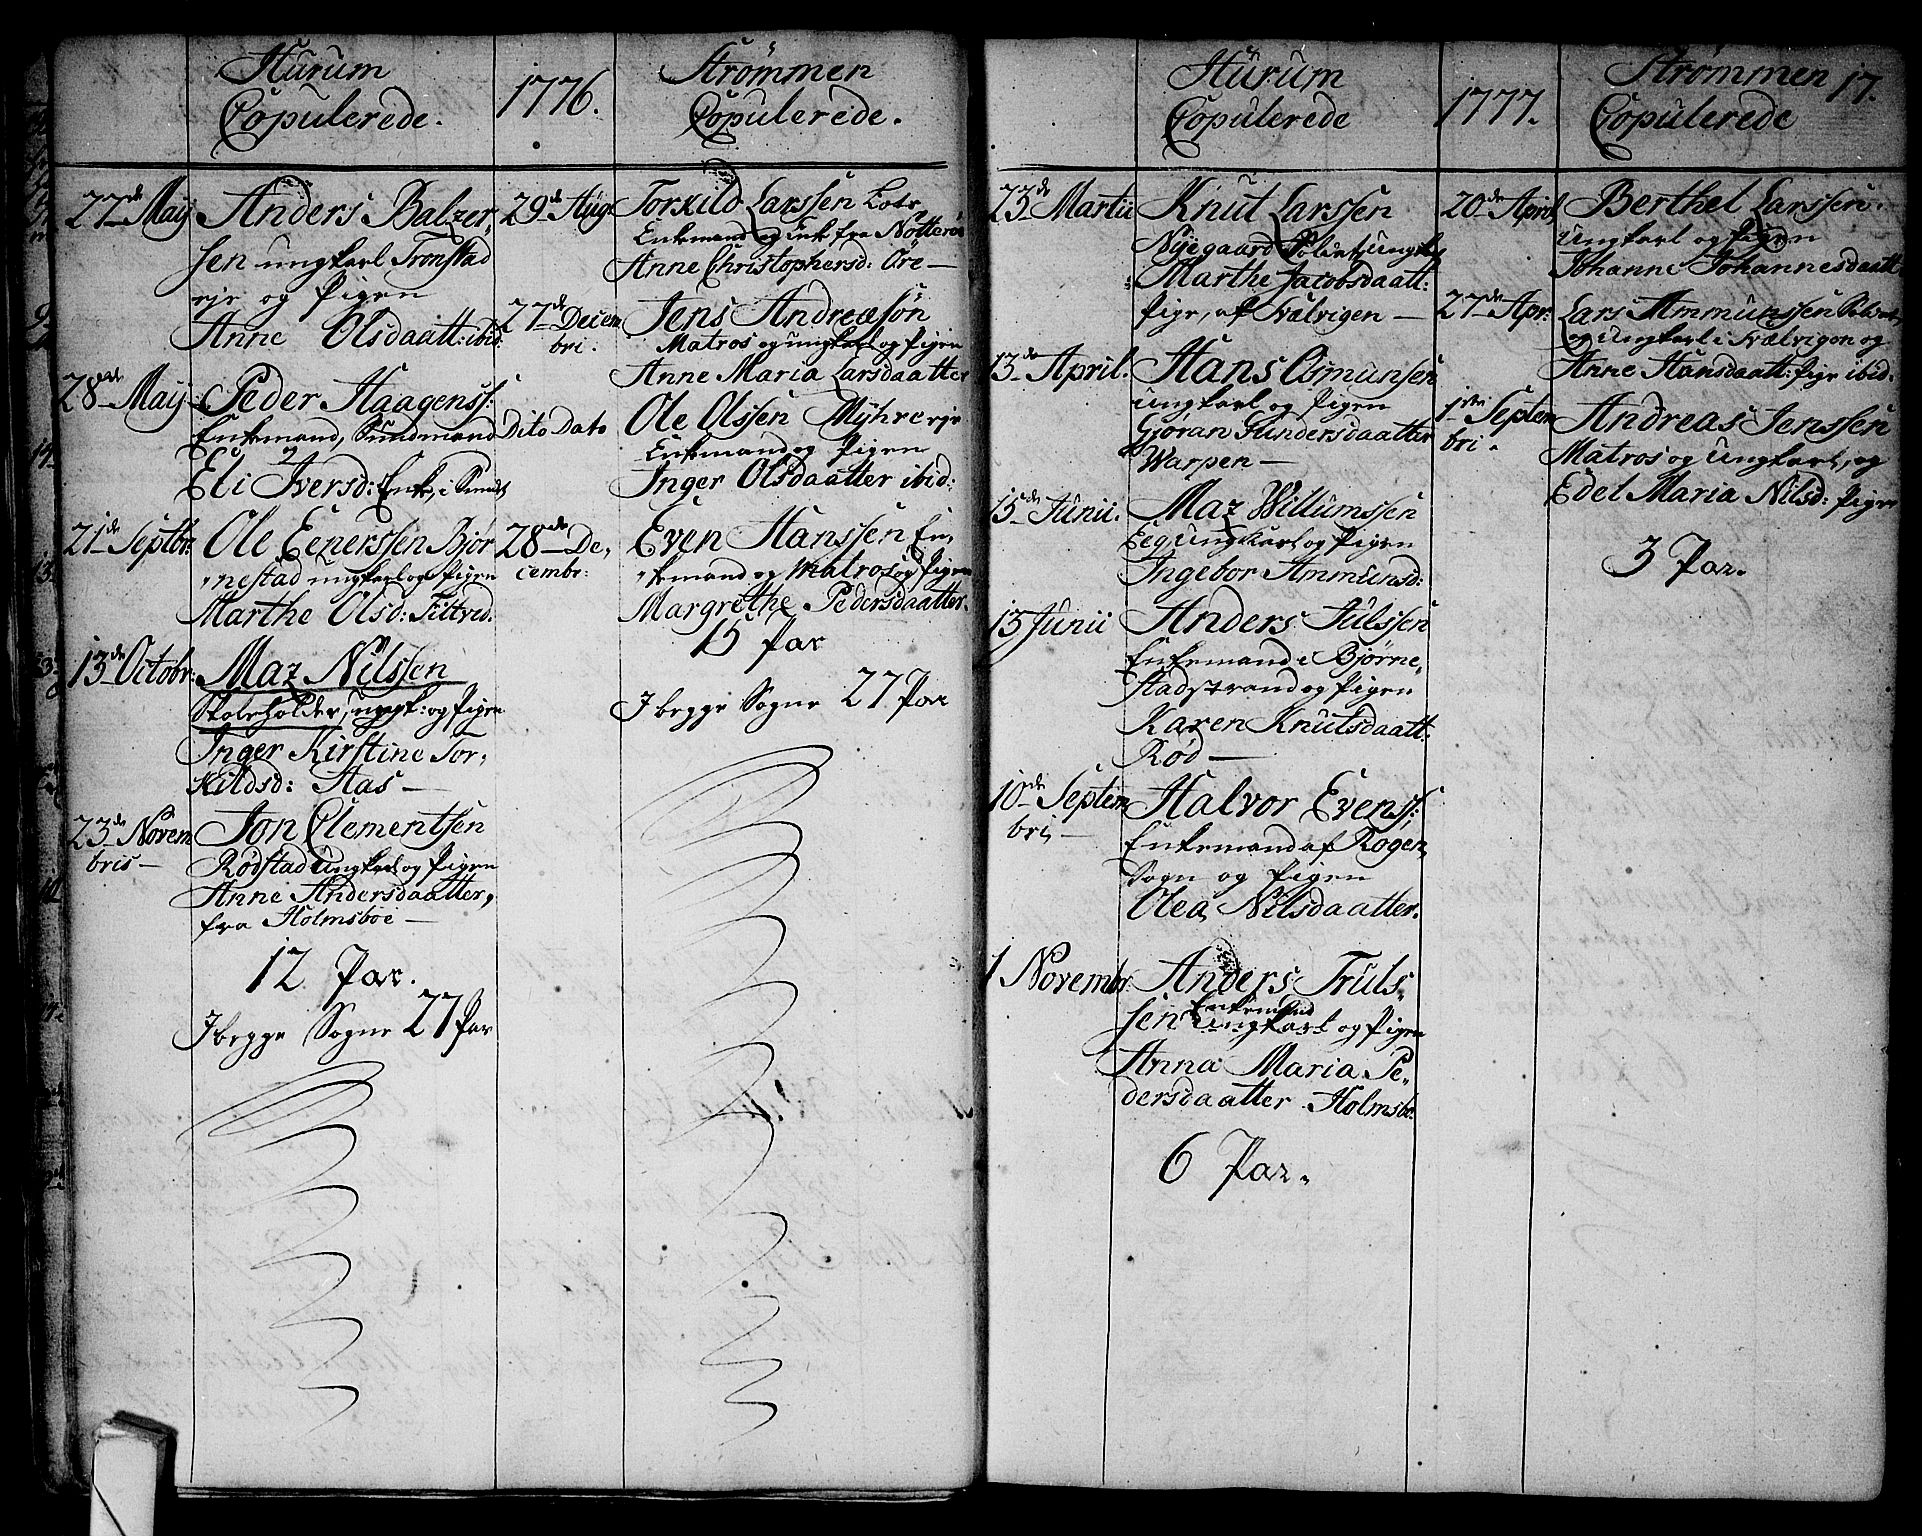 Hurum
Copulerede.
27de Maij
Anders Balzer,
sen ungkarl Tronstad
eje og Pigen
Anne Olsdaatt: ibid:
28de Maij
Peder Haagenss:
Enkemand, Sundmand
Eli Iversd: Enke, i Sundt
21de Septbr:
Ole Eenerssen Bjør
"nestad ungkarl og Pigen
Marthe Olsd: Tittved.
13de Octobr:
Maz Nilssen
Skoleholder, ungk: og Pigen
Inger Kirstine Tor,
kildsd: Aas —
23de Novem
bris —
Jon Clementsen
Rødstad ungkarl og Pigen
Anne Andersdaatter,
fra Holmsboe —
12 Par.
I begge Sogne 27 Par
1776.
Strømmen
Copulerede.
29de Aug:
Torkild Larssen
Enkemand og Enk fra Nøtterøe
Anne Christophersd: Öre —
27de Decem
bri.
Jens Andreasøn
Matros og ungkarl og Pigen
Anne Maria Larsdaatter
Dito Dato
Ole Olssen Myhre eje
Enkemand og Pigen
Inger Olsdaatter ibid:
28de De,
cembr:
Even Hanssen En,
"kemand og Matros og Pigen
Margrethe Pedersdaatter.
15 Par
I begge Sogne 27 Par
Hurum
Copulerede
23de Martii
Knut Larssen
Nyegaard Soldat, Ungk:
Marthe Jacobsdaatt:
Pige, af Svælvigen —
13de April.
Hans Osmunsen
ungkarl og Pigen
Gjøran Gundersdaatter
Warpen —
15de Junii.
Maz Willumssen
Eeg ungkarl og Pigen
Ingebor Ammunsd:
15 Junii
Anders Julssen
Enkemand i Bjørne,
stadstrand og Pigen
Karen Knutsdaatt:
Rød —
10de Septem
bri —
Halvor Evenss:
Enkemand af Rogen,
Sogn og Pigen
Olea Nilsdaatter.
1 Novembr
Anders Truls,
Enkemand
sen ungkarl og Pigen
Anna Maria Pe,
dersdaatter Holmsbo:
6 Par.
1777.
Strømmen
Copulerede
17.
20de April
Berthel Larssen.
Ungkarl og Pigen
Johanne Johannesdaatt
27de Apr:
Lars Ammunssen
og Ungkarl i Svælvigen og
Anne Hansdaatt: Pige ibid.
1ste Septem
bri.
Andreas Jenssen
Matros og Ungkarl, og
Edel Maria Nilsd: Pige
3 Par.